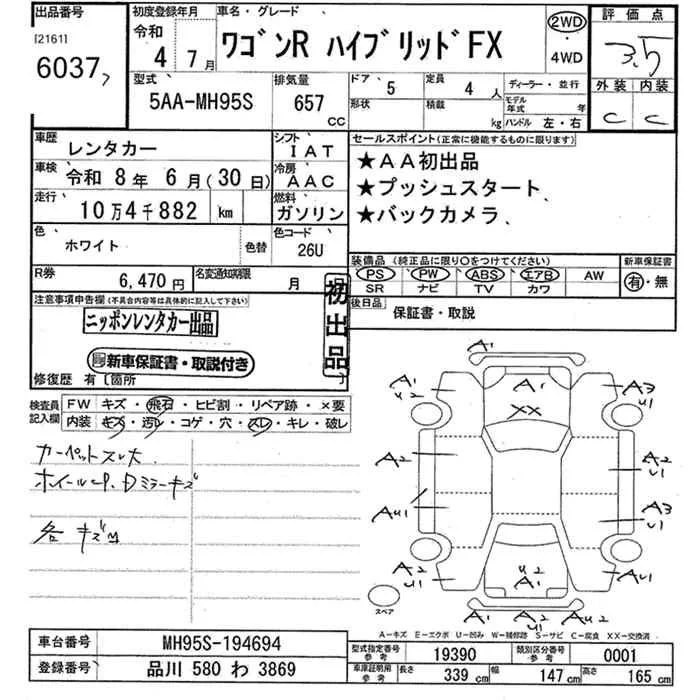 出品番号 初度登録年月 車名・グレード 評価点
[2161] 令和 ワゴンR ハイブリッドFX 2WD 3.5
6037 4年 7月 4WD
型式 排気量 ドア 定員 ディーラー・並行 外装 内装
5AA-MH95S 657 cc 5 4 人 C C
形状 積載 kg モデル年式 年 ハンドル 左・右
車歴 レンタカー シフト IAT セールスポイント(正常に機能するものに限ります)
車検 令和 8年 6月(30日) 冷房 AAC ★AA初出品
走行 10万4千882 km 燃料 ガソリン ★プッシュスタート
★バックカメラ
色 ホワイト 色替 色コード 26U
装備品 (純正品に限り○をつけてください) 新車保証書
R券 6,470円 名変通知期限 月 PS PW ABS エアB AW 有・無
SR ナビ TV カワ
注意事項申告欄(不具合内容等は具体的に記入して下さい) 初出品 後日品 保証書・取説
ニッポンレンタカー出品
新車保証書・取説付き
修復歴 有 [箇所 ]
検査員記入欄 FW キズ・飛石・ヒビ割・リペア跡・×要
内装 キズ・汚レ・コゲ・穴・スレ・キレ・破レ
カーペットスレ大
各キズ
A1
A1 U2 A1 A3 U1
XX
A2 A2 U1
AU1 A3 U1
A2 U1 U2 A1 AU1
スペア A1 A2 U1 AU2
A-キズ E-エクボ U-凹み W-補修跡 S-サビ C-腐食 XX-交換済
車台番号 MH95S-194694 型式指定番号 参考 19390 類別区分番号 参考 0001
登録番号 品川 580 わ 3869 車庫証明用 参考 長さ 339 cm 幅 147 cm 高さ 165 cm